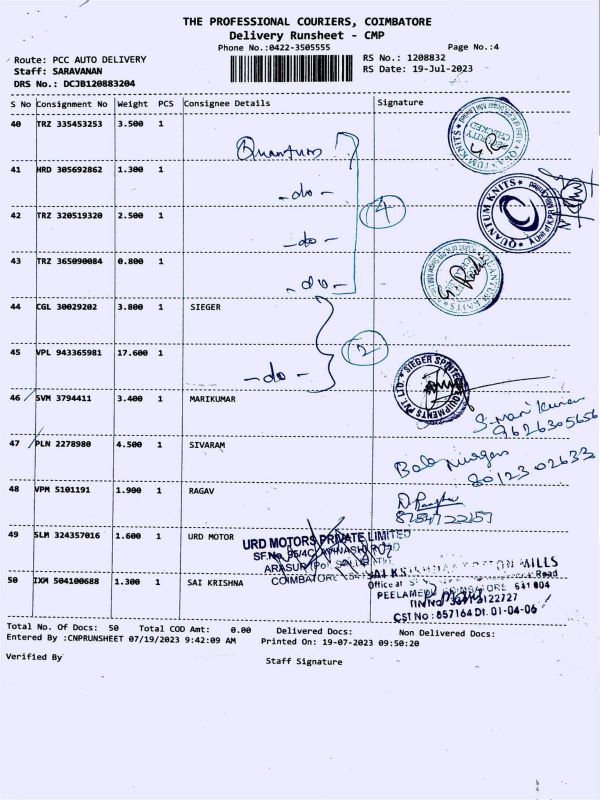 THE PROFESSIONAL COURIERS, COIMBATORE
Delivery Runsheet - CMP
Phone No.:0422-3505555 Page No.:4
Route: PCC AUTO DELIVERY RS No.: 1208832
Staff: SARAVANAN RS Date: 19-Jul-2023
DRS No.: DCJB120883204
S No Consignment No Weight PCS Consignee Details Signature
40 TRZ 335453253 3.500 1
Quantum
41 HRD 305692862 1.300 1
-do-
4
QUANTUM KNITS
42 TRZ 320519320 2.500 1
-do-
43 TRZ 365090084 0.800 1
-do-
44 CGL 30029202 3.800 1 SIEGER
2
45 VPL 943365981 17.600 1
-do-
SIEGER SPINTECH EQUIPMENTS PVT. LTD.
46 SVM 3794411 3.400 1 MARIKUMAR
9626305656
47 PLN 2278980 4.500 1 SIVARAM
80123 02633
48 VPM 5101191 1.900 1 RAGAV
49 SLM 324357016 1.600 1 URD MOTOR
URD MOTORS PRIVATE LIMITED
COIMBATORE
50 IXM 504100688 1.300 1 SAI KRISHNA
MILLS
Office at Road
PEELAMEDU COIMBATORE 641 004
CST No : 857164 Dt. 01-04-06
Total No. Of Docs: 50 Total COD Amt: 0.00 Delivered Docs: Non Delivered Docs:
Entered By :CNPRUNSHEET 07/19/2023 9:42:09 AM Printed On: 19-07-2023 09:50:20
Verified By Staff Signature